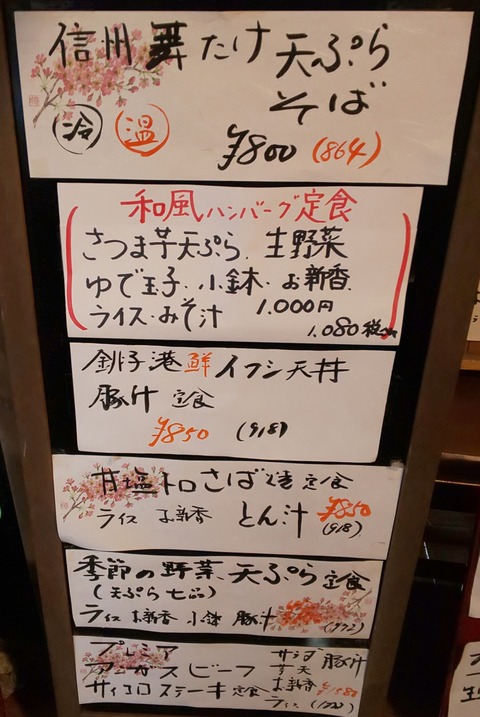 信州舞たけ天ぷら
そば
冷 温 ¥800 (864)
和風ハンバーグ定食
さつま芋天ぷら、生野菜
ゆで玉子、小鉢、お新香、
ライス・みそ汁 1.000円
1.080 税込
銚子港鮮イワシ天丼
豚汁 定食
¥850 (918)
甘塩トロさば焼定食
ライス お新香 とん汁 ¥850
(918)
季節の野菜、天ぷら定食
(天ぷら七品)
ライス お新香 小鉢 豚汁 (972)
プレミア サラダ 豚汁
アンガスビーフ
サイコロステーキ定食 お新香
ライス